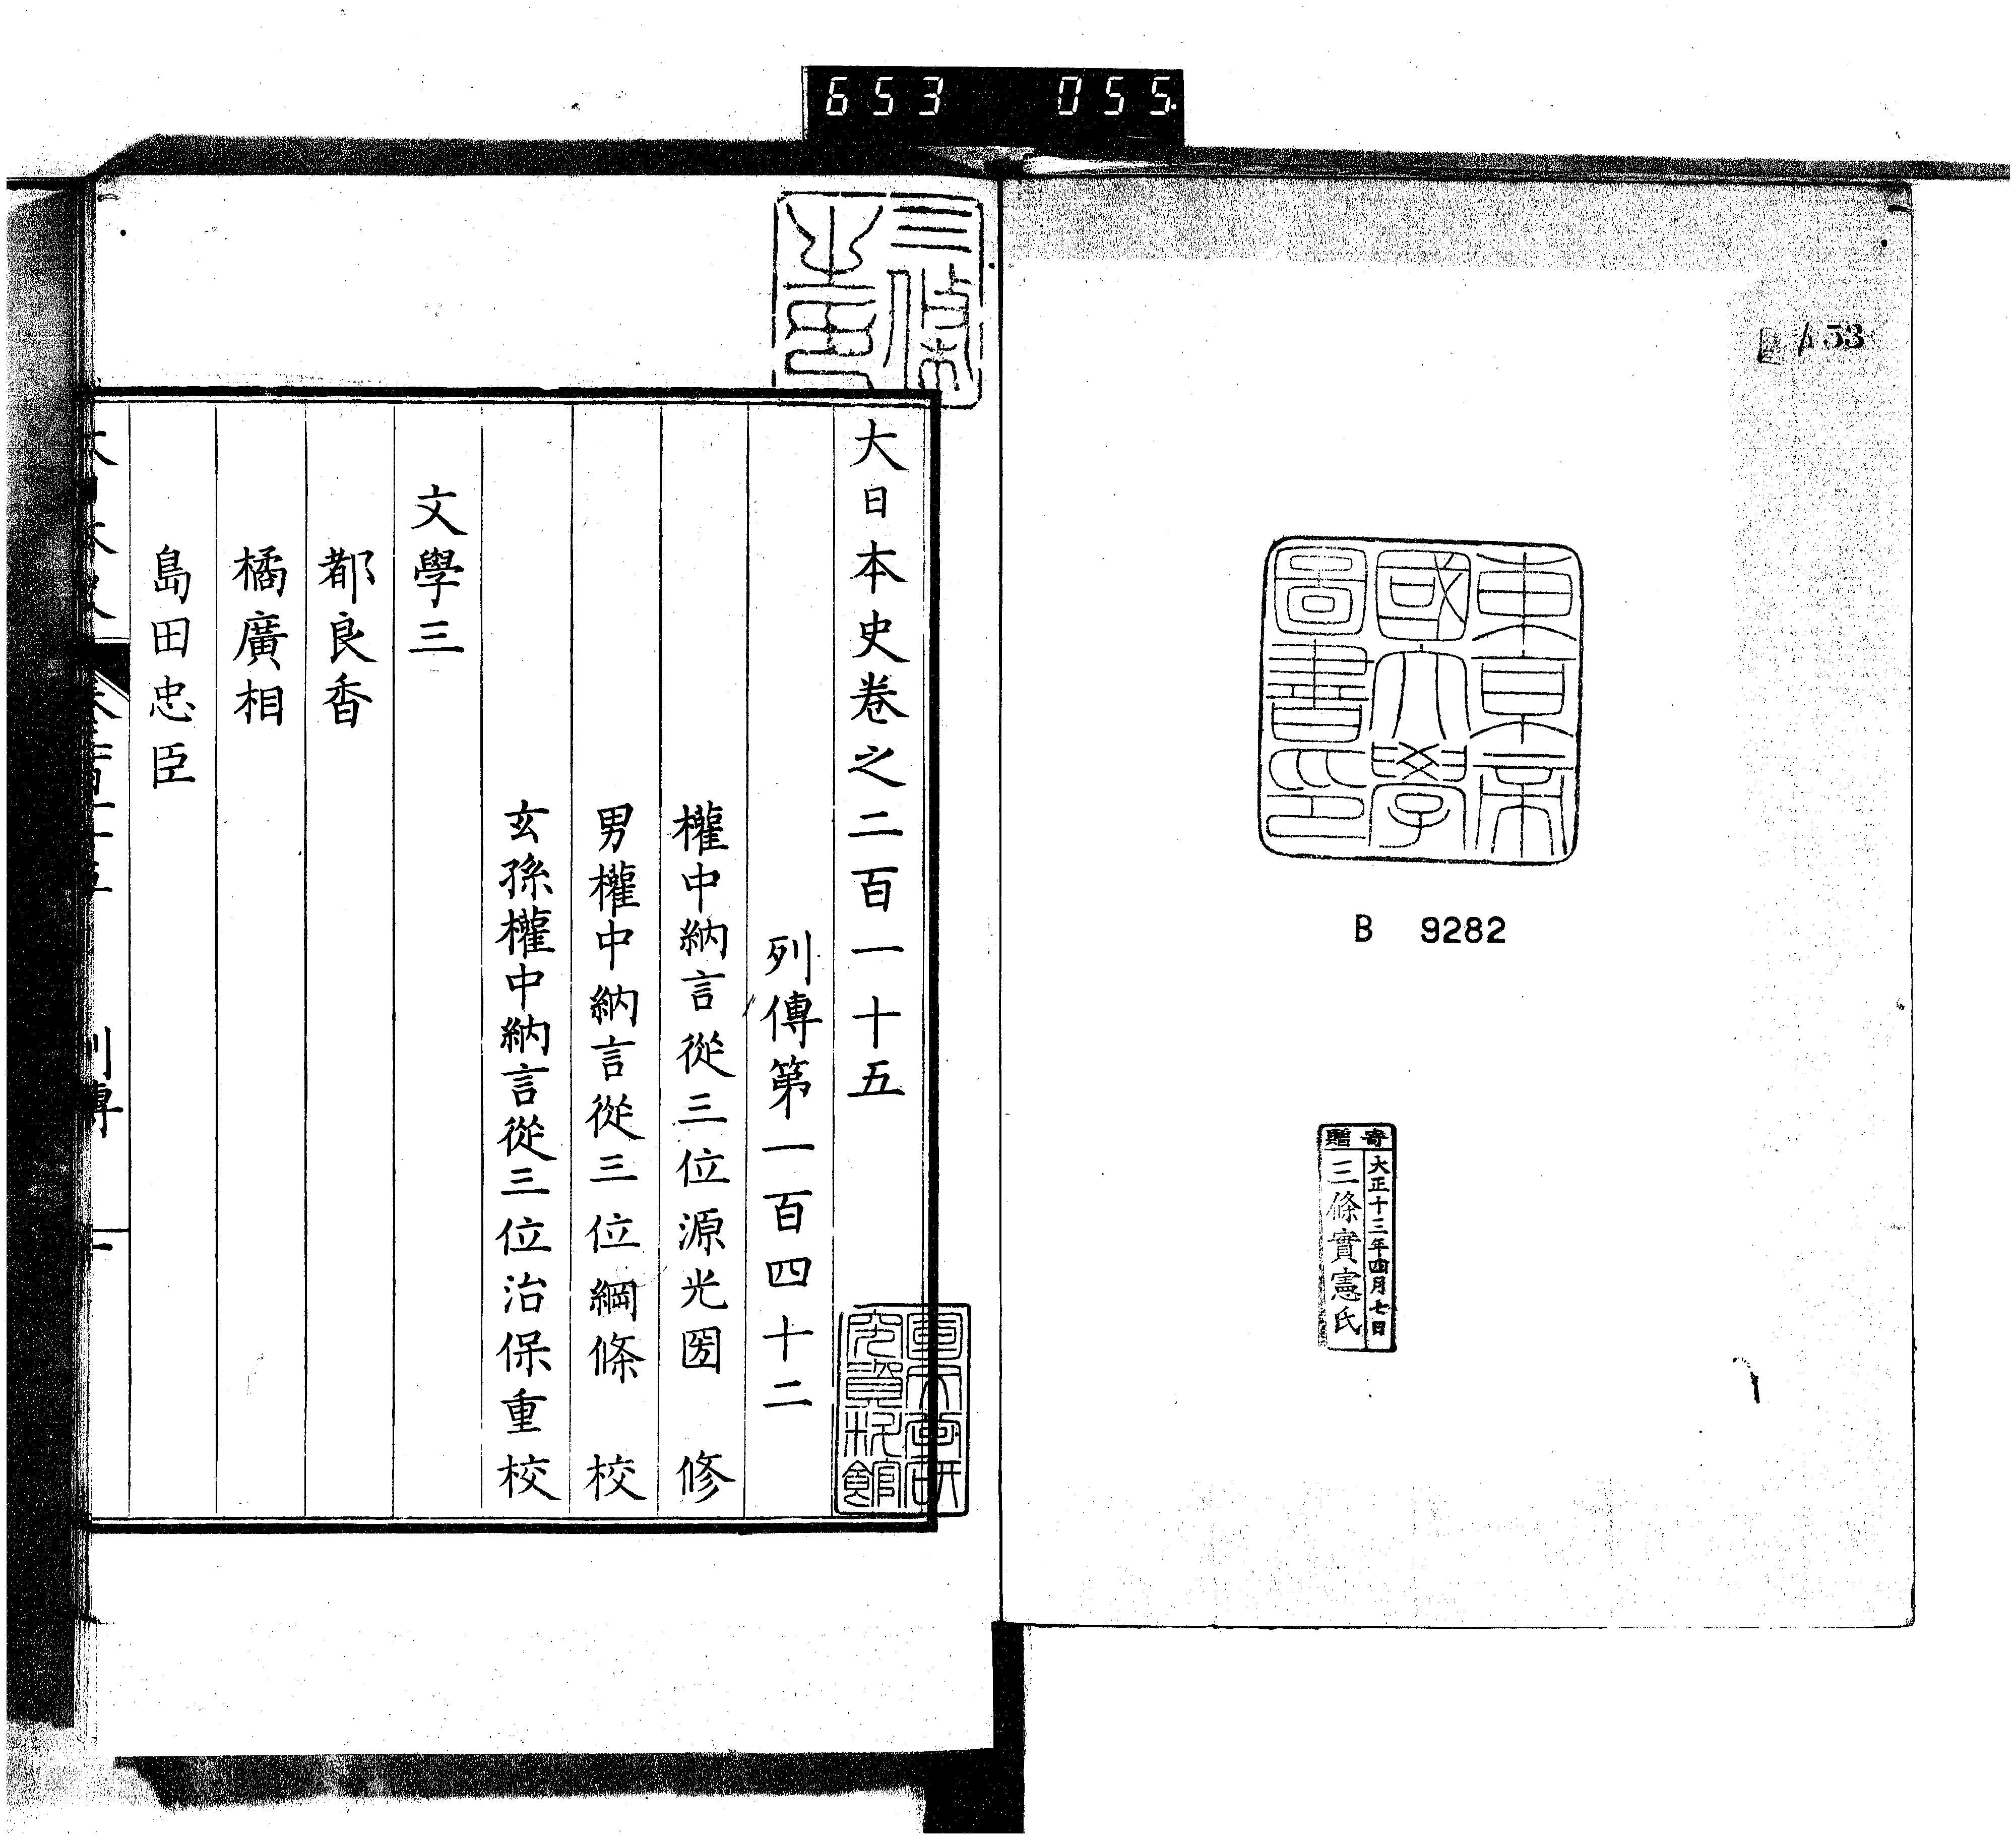 653 055
53
東京帝
國大學
圖書印
B 9282
寄贈
大正十三年四月七日
三條實憲氏
三條
大日本史卷之二百一十五
列傳第一百四十二
權中納言從三位源光圀 修
男權中納言從三位綱條 校
玄孫權中納言從三位治保重校
文學三
都良香
橘廣相
島田忠臣
列傳